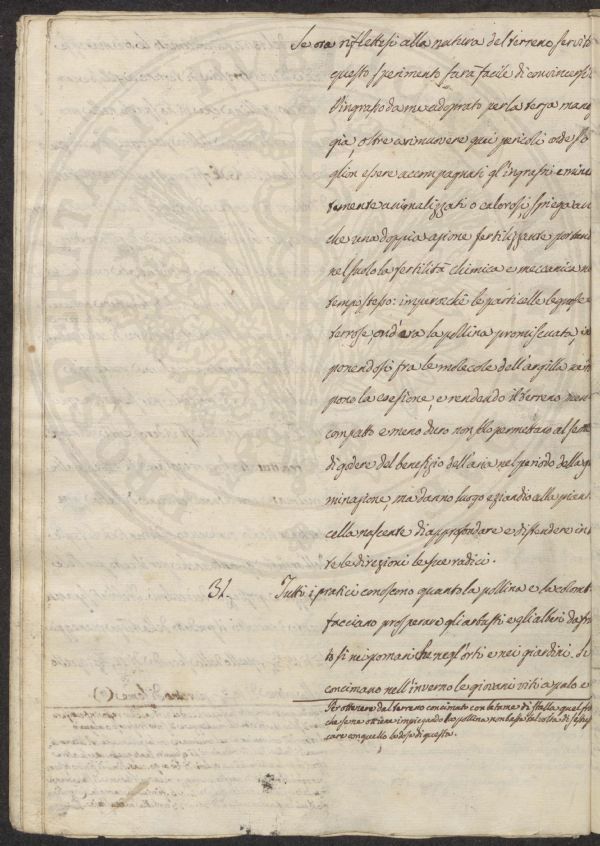 Se ora riflettesi alla natura del terreno servito
questo sperimento sarà facile di convincersi
l'ingrasso da me adoprato per la terza man
gia, oltre a rimuovere quei pericoli onde so
glion essere accompagnati gl'ingrassi emine
temente animalizzati o calorosi, spiega a
che una doppia azione fertilizzante portan
nel suolo la fertilità chimica e meccanica n
tempo stesso: imperocchè le particelle legnose e
terrose ond'era la pollina promiscuata, in
ponendosi fra le molecole dell'argilla
pono la coesione, e rendendo il terreno men
compatto e meno duro non solo permettano al seme
di godere del benefizio dell'aria nel periodo della g
minazione, ma danno luogo eziandio alla pian
cella nascente di approfondare e distendere in
te le direzioni le sue radici.
31. Tutti i pratici conoscono quanto la pollina e la colomb
facciano prosperare gli arbusti e gli alberi da fru
to sì nei pomari che negl'orti e nei giardini. Si
concimano nell'inverno le giovani viti a palo e
Per ottenere dal terreno concimato con letame di stalla quel fru
che se ne ottiene impiegando la pollina non basta talvolta di
care con quello la dose di questa.